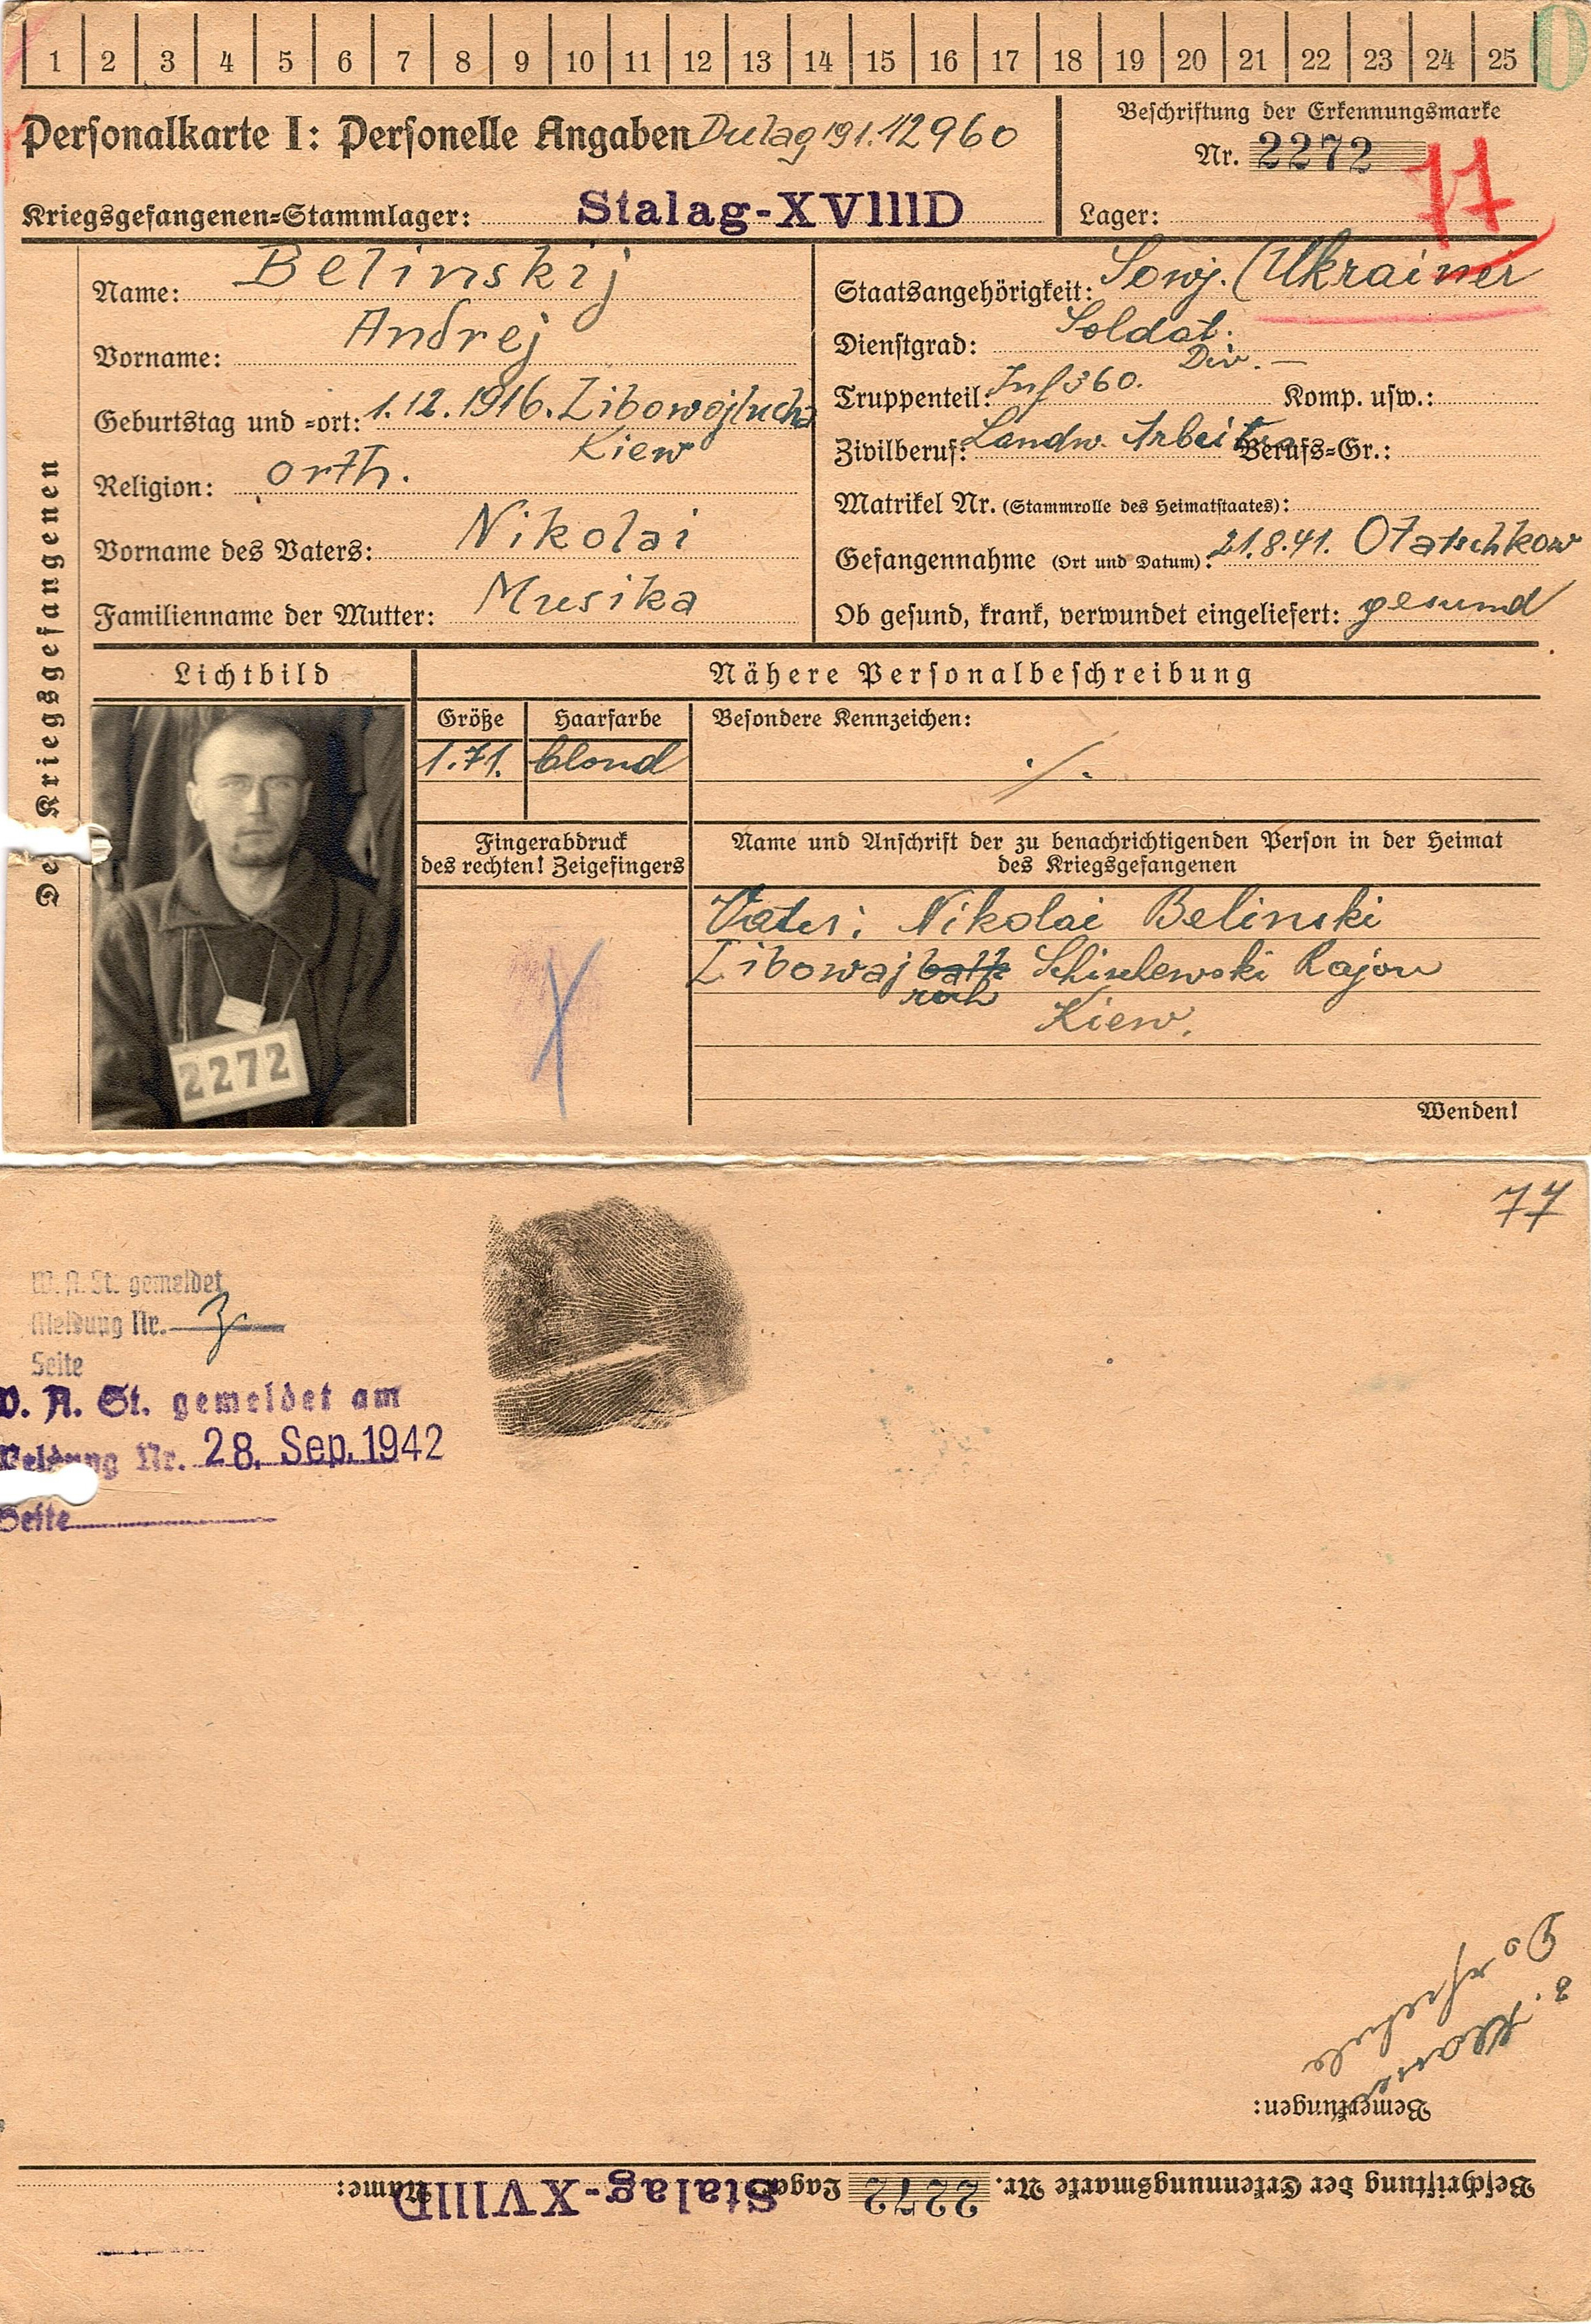 1 2 3 4 5 6 7 8 9 10 11 12 13 14 15 16 17 18 19 20 21 22 23 24 25
Personalkarte I: Personelle Angaben Dulag 191. 12960
Beschriftung der Erkennungsmarke
Nr. 2272
77
Kriegsgefangenen=Stammlager: Stalag-XVIIID
Lager:
Des Kriegsgefangenen
Name: Belinskij
Vorname: Andrej
Geburtstag und =ort: 1.12.1916.
Kiew
Religion: orth.
Vorname des Vaters: Nikolai
Familienname der Mutter: Musika
Staatsangehörigkeit: Sowj. (Ukrainer
Dienstgrad: Soldat.
Div. —
Truppenteil: Inf 360. Komp. usw.:
Zivilberuf: Landw. Arbeiter Berufs=Gr.:
Matrikel Nr. (Stammrolle des Heimatstaates):
Gefangennahme (Ort und Datum): 21.8.41. Otatschkow
Ob gesund, krank, verwundet eingeliefert: gesund
Lichtbild
Nähere Personalbeschreibung
Größe Haarfarbe Besondere Kennzeichen:
1.71. blond ./.
Fingerabdruck
des rechten! Zeigefingers
2272
Name und Anschrift der zu benachrichtigenden Person in der Heimat
des Kriegsgefangenen
Vater: Nikolai Belinski
Rajon
Kiew.
Wenden!
77
W. A. St. gemeldet
Meldung Nr.
Seite
W. A. St. gemeldet am
Meldung Nr. 28. Sep. 1942
Seite
Bemerkungen:
Beschriftung der Erkennungsmarke Nr. 2272 Lager Stalag-XVIIID Name: